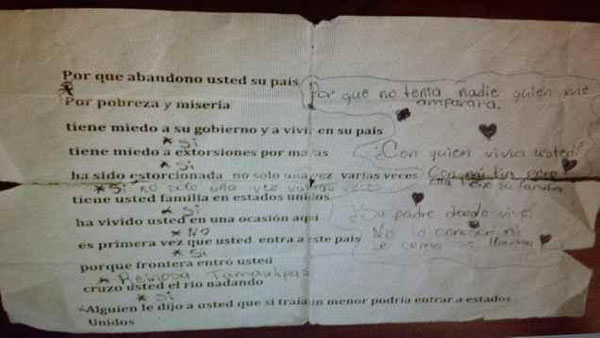 Por que abandono usted su pais
Por que no tenia nadie quien me
amparara.
Por pobreza y miseria
tiene miedo a su gobierno y a vivir en su pais
* Si
tiene miedo a extorsiones por maras
* Si
¿Con quien vivia usted?
ha sido estorcionada no solo una vez varias veces
Con mi tia pero
ella tiene su familia
* Si no solo una vez varias veces
tiene usted familia en estados unidos
* Si
¿Su padre donde vive.
ha vivido usted en una ocasión aqui
* NO
No lo conozco ni
se como se llama
es primera vez que usted entra a este pais
* Si
porque frontera entró usted
* Reinosa Tamaulipas
cruzo usted el rio nadando
* Si
Alguien le dijo a usted que si traia un menor podria entrar a estados
Unidos